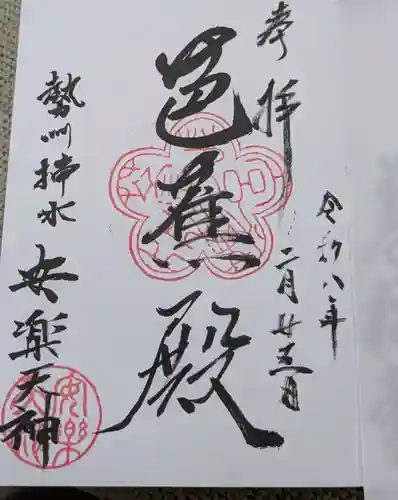 奉拝
令和八年
二月廿五日
芭蕉殿
勢州挿水
安楽天神